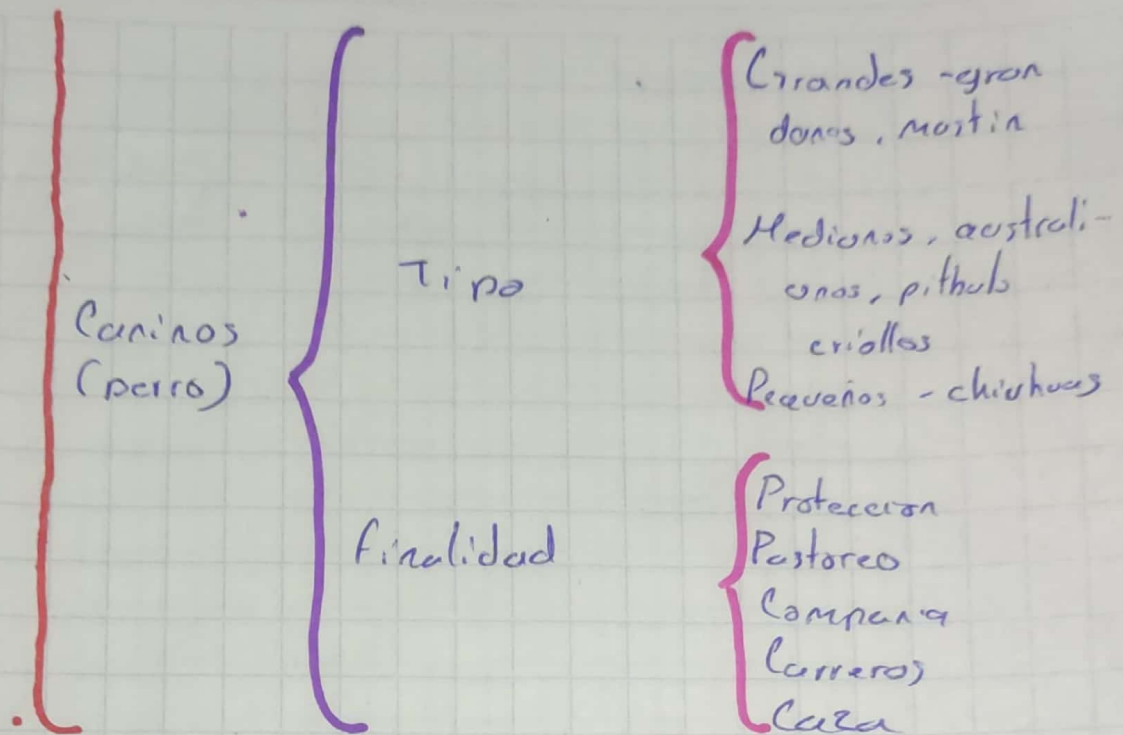 Caninos
(perro)
Tipo
Grandes - gran
danes, mastin
Medianos, australi-
anos, pitbuls
criollos
Pequeños - chiuhuas
Finalidad
Proteccion
Pastoreo
Compania
Carreros
Caza